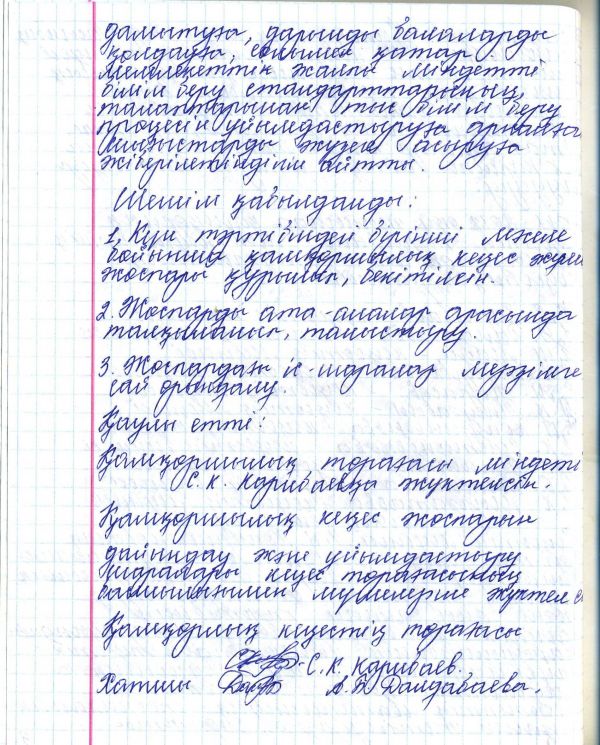 дамытуға, дарынды балаларды
қолдауға, сонымен қатар
мемлекеттік жалпы міндетті
білім беру стандарттарының
талаптарынан тыс білім беру
процесін ұйымдастыруға арналған
шығыстарды жүзеге асыруға
жіберілетіндігін айтты.
Шешім қабылданды:
1, Күн тәртібіндегі бірінші мәселе
бойынша қамқоршылық кеңес
жоспары құрылып, бекітілсін.
2. Жоспарды ата-аналар арасында
талқыланып, таныстыру.
3. Жоспардан іс-шаралар мерзіміне
сай орындалу.
Қаулы етті:
Қамқоршылық төрағасы міндеті
С. К. Карибаевқа жүктелсін.
Қамқоршылық кеңес жоспарын
дайындау және ұйымдастыру
шаралары кеңес төрағасының
мүшелеріне
Қамқорлық кеңестің төрағасы
С. К. Карибаев.
Хатшы А. Б Далдабаева.